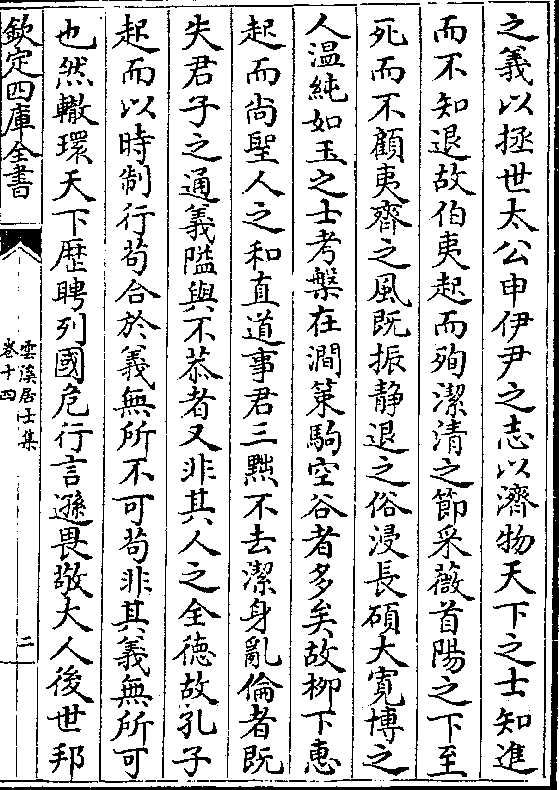 之義以拯世太公申伊尹之志以濟物天下之士知進
而不知退故伯夷起而殉潔清之節采薇首陽之下至
死而不顧夷齊之風既振靜退之俗浸長碩大寬博之
人温純如玉之士考槃在澗䇿駒空谷者多矣故栁下惠
起而尚聖人之和直道事君三黜不去潔身亂倫者既
失君子之通義隘與不恭者又非其人之全徳故孔子
起而以時制行苟合於義無所不可苟非其義無所可
也然轍環天下歴聘列國危行言遜畏敬大人後世邦
欽定四庫全書
雲溪居士集
卷十四
二